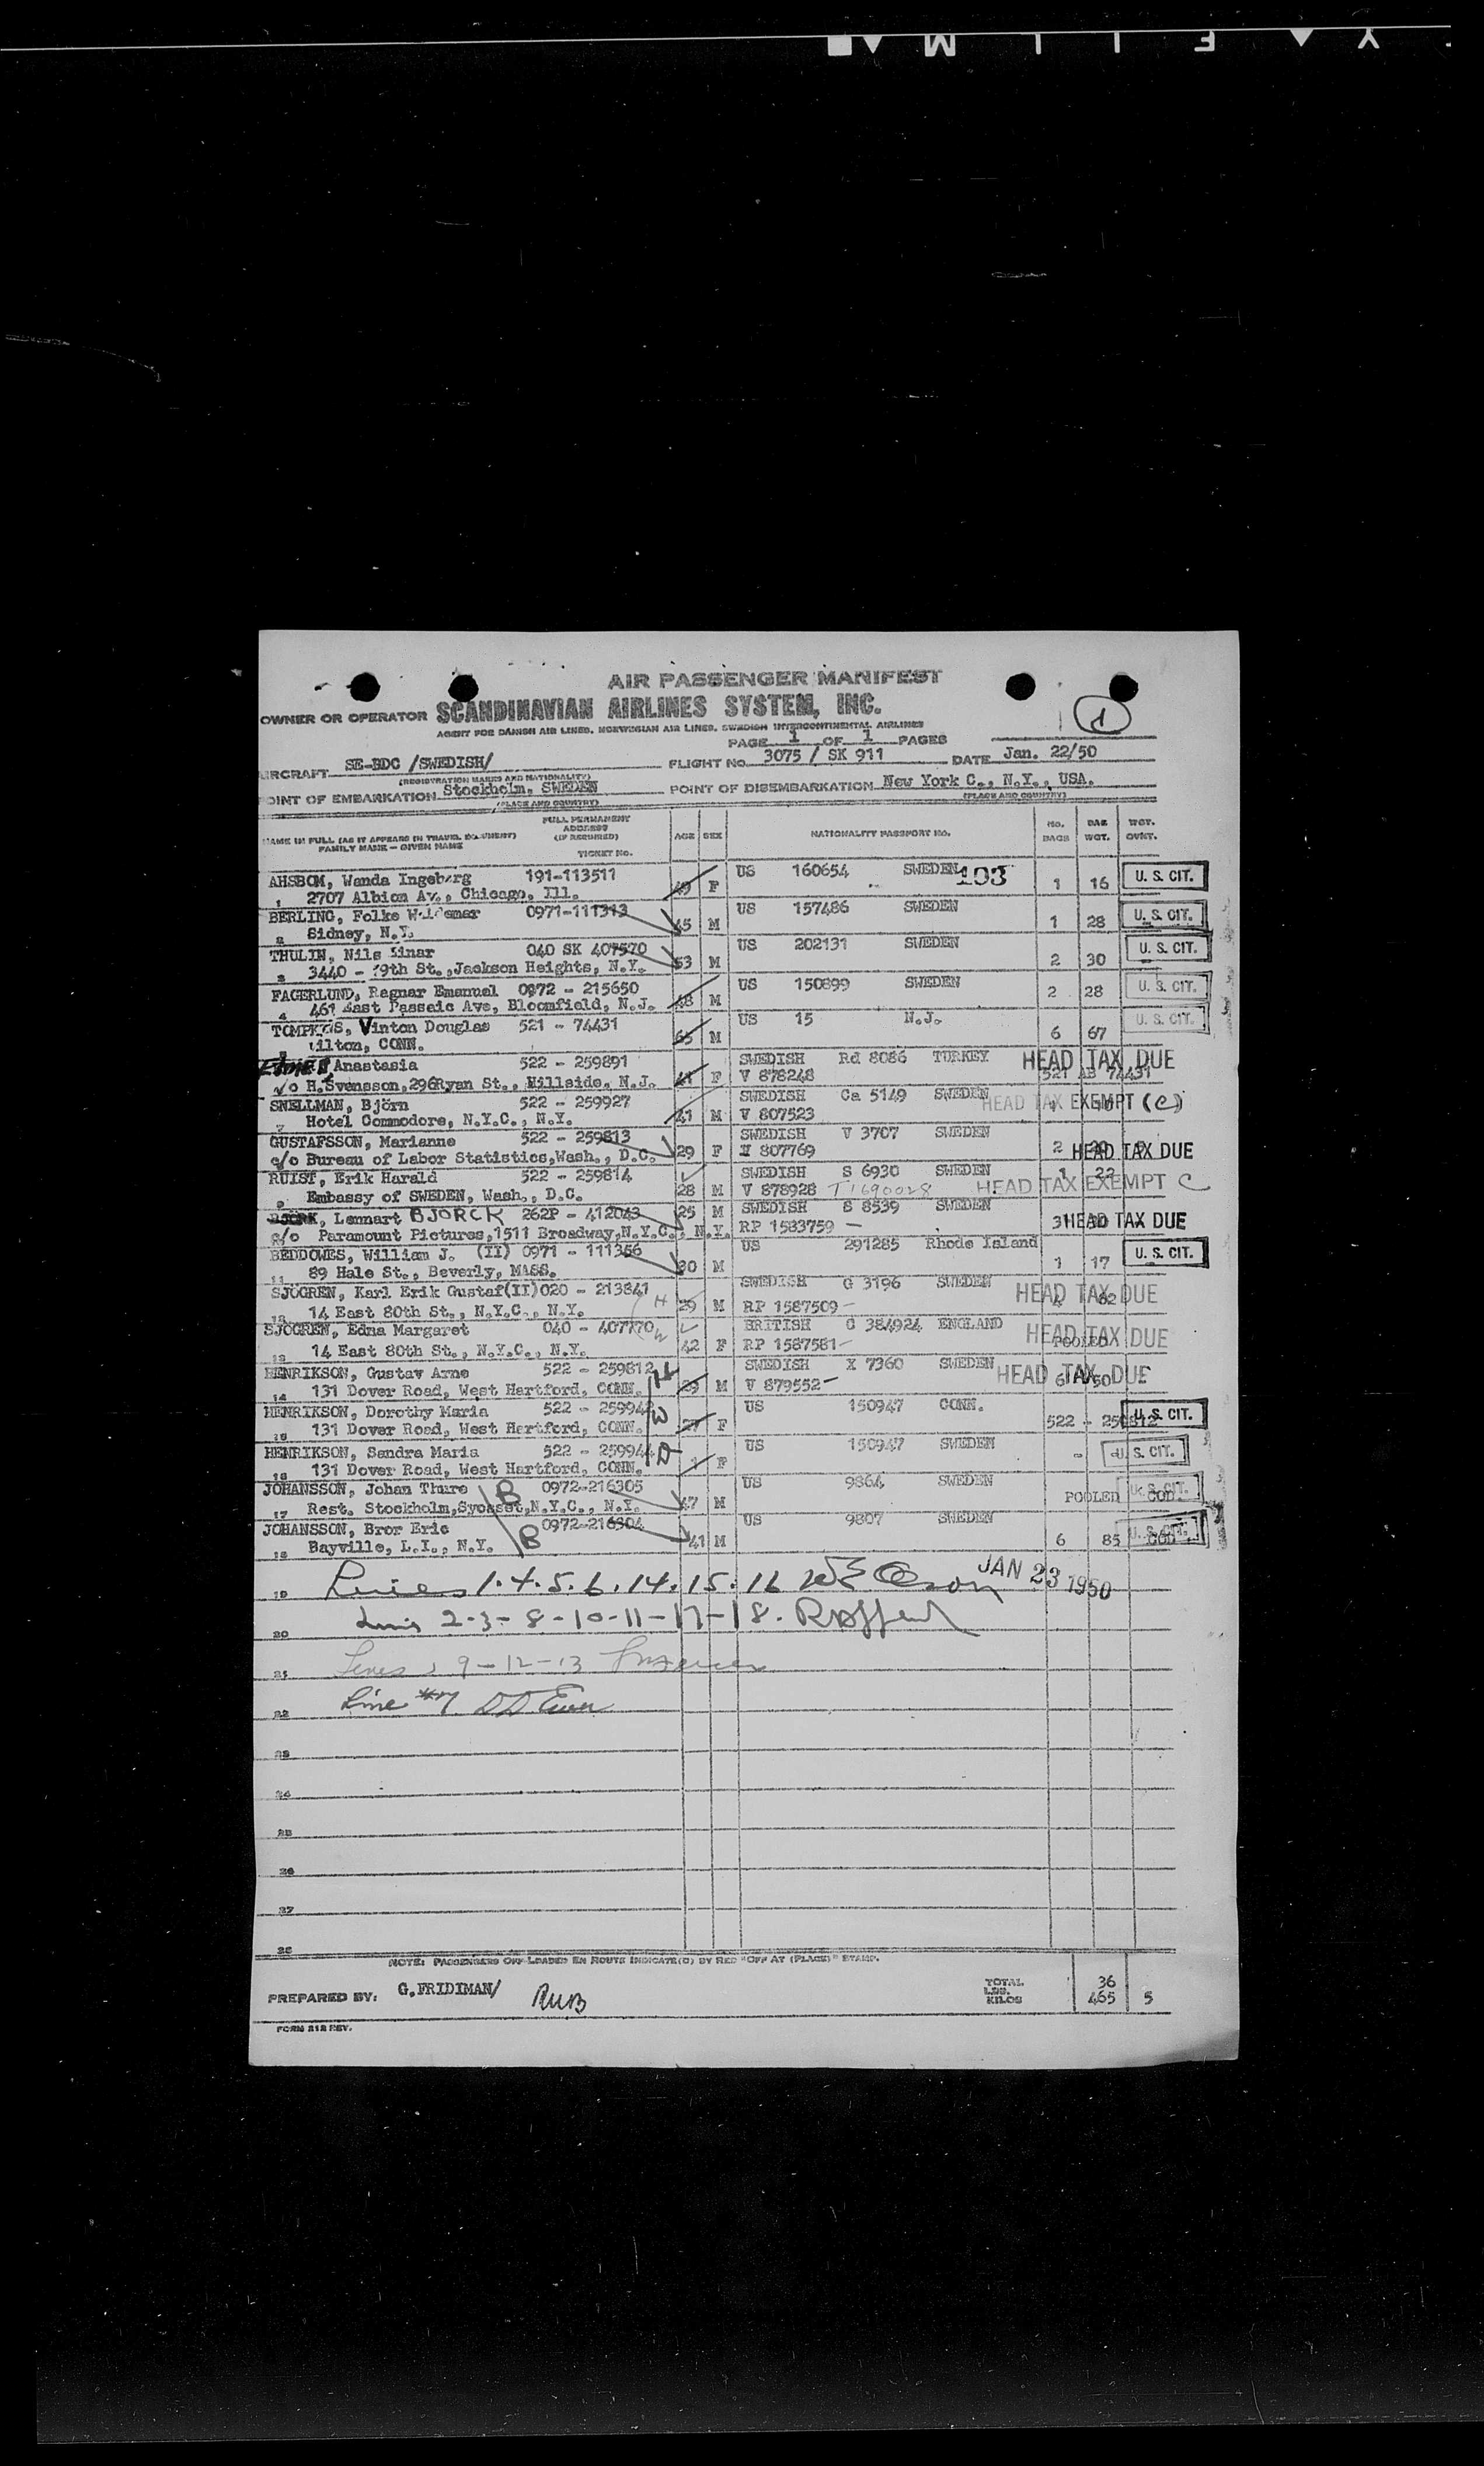 AIR PASSENGER MANIFEST
OWNER OR OPERATOR SCANDINAVIAN AIRLINES SYSTEM, INC.
1
AGENT FOR DANISH AIR LINES, NORWEGIAN AIR LINES, SWEDISH INTERCONTINENTAL AIRLINES
PAGE 1 OF 1 PAGES
AIRCRAFT SE-BDC /SWEDISH/ FLIGHT NO. 3075 / SK 911 DATE Jan. 22/50
(REGISTRATION MARKS AND NATIONALITY)
POINT OF EMBARKATION Stockholm, SWEDEN POINT OF DISEMBARKATION New York C., N.Y., USA.
(PLACE AND COUNTRY) (PLACE AND COUNTRY)
NAME IN FULL (AS IT APPEARS IN TRAVEL DOCUMENT) FULL PERMANENT ADDRESS (IF REQUIRED) AGE SEX NATIONALITY PASSPORT NO. NO. BAGS BAG WGT. WGT. OVNT.
FAMILY NAME - GIVEN NAME TICKET NO.
AHSBOM, Wanda Ingeborg 191-113511 US 160654 SWEDEN 103
1 2707 Albion Av., Chicago, Ill. 49 F 1 16 U. S. CIT.
BERLING, Folke Waldemar 0971-111313 US 157486 SWEDEN
2 Sidney, N.Y. 45 M 1 28 U. S. CIT.
THULIN, Nils Einar 040 SK 407570 US 202131 SWEDEN
3 3440 - 79th St., Jackson Heights, N.Y. 53 M 2 30 U. S. CIT.
FAGERLUND, Ragnar Emanuel 0972 - 215650 US 150899 SWEDEN
4 461 East Passaic Ave, Bloomfield, N.J. 48 M 2 28 U. S. CIT.
TOMPKINS, Vinton Douglas 521 - 74431 US 15 N.J.
5 Wilton, CONN. 65 M 6 67 U. S. CIT.
Anastasia 522 - 259891 SWEDISH Rd 8086 TURKEY HEAD TAX DUE
c/o H.Svensson,296Ryan St., Hillside, N.J. 41 F V 878248 521 AB 74431
SNELLMAN, Björn 522 - 259927 SWEDISH Ca 5149 SWEDEN HEAD TAX EXEMPT (C)
7 Hotel Commodore, N.Y.C., N.Y. 41 M V 807523
GUSTAFSSON, Marianne 522 - 259813 SWEDISH V 3707 SWEDEN
c/o Bureau of Labor Statistics,Wash., D.C. 29 F V 807769 2 HEAD TAX DUE
RUIST, Erik Harald 522 - 259814 SWEDISH S 6930 SWEDEN 1 22
9 Embassy of SWEDEN, Wash., D.C. 28 M V 878928 T1690028 HEAD TAX EXEMPT C
BJORK, Lennart BJORCK 262P - 412043 25 M SWEDISH S 8539 SWEDEN
c/o Paramount Pictures,1511 Broadway,N.Y.C., N.Y. RP 1583759 - 3 HEAD TAX DUE
BEDDOWES, William J. (II) 0971 - 111356 US 291285 Rhode Island
11 89 Hale St., Beverly, MASS. 30 M 1 17 U. S. CIT.
SJOGREN, Karl Erik Gustaf(II)020 - 213841 SWEDISH G 3196 SWEDEN HEAD TAX DUE
12 14 East 80th St., N.Y.C., N.Y. H 29 M RP 1587509 - 4 82
SJOGREN, Edna Margaret 040 - 407770 W BRITISH C 384924 ENGLAND HEAD TAX DUE
13 14 East 80th St., N.Y.C., N.Y. 42 F RP 1587581 - POOLED
HENRIKSON, Gustav Arne 522 - 259812 H SWEDISH X 7360 SWEDEN HEAD TAX DUE
14 131 Dover Road, West Hartford, CONN. 29 M V 879552 - 6 50
HENRIKSON, Dorothy Maria 522 - 259942 W US 150947 CONN.
15 131 Dover Road, West Hartford, CONN. 27 F 522 - 259812 U. S. CIT.
HENRIKSON, Sandra Maria 522 - 259944 D US 150947 SWEDEN
16 131 Dover Road, West Hartford, CONN. 1 F - U. S. CIT.
JOHANSSON, Johan Thure B 0972-216305 US 9864 SWEDEN
17 Rest. Stockholm,Syosset,N.Y.C., N.Y. 47 M POOLED COD U. S. CIT.
JOHANSSON, Bror Eric 0972-216304 US 9807 SWEDEN
18 Bayville, L.I., N.Y. B 41 M 6 85 COD U. S. CIT.
19 Lines 1.4.5.6.14.15.16 JAN 23 1950
20 Lines 2-3-8-10-11-17-18.
21 Lines 9-12-13
22 Line #7
23
24
25
26
27
28
NOTE: PASSENGERS OFF-LOADED EN ROUTE INDICATE(D) BY RED "OFF AT (PLACE)" STAMP.
PREPARED BY: G.FRIDIMAN/ RWB TOTAL 36
LBS.
KILOS 465 5
FORM 218 REV.